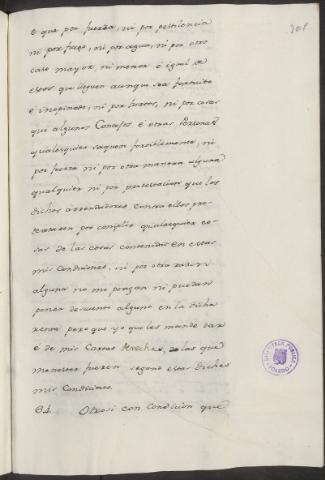 o que por fuerza, ni por pestilencia
ni por fuego, ni por agua, ni por otro
caso mayor, ni menor o igual de
estos que vengan aunque sea fortuito
e inopinado, ni por fuerza, ni por cosas
que algunos Concejos e otras Personas
qualesquier hagan forciblemente, ni
por fuerza ni por otra manera alguna
qualquier ni por protestacion que los
dichos arrendadores contra ellos pro
testaren por complir qualesquier co
sas de las cosas contenidas en estas
mis Condiciones, ni por otra razon
alguna no me pongan ni puedan
poner descuento alguno en la dicha
renta para que yo que les mande dar
e de mis Cartas derechas, de las que
menester fueren segund estas dichas
mis Condiciones
84. Otrosi con Condicion que
308
BIBLIOTECA PUBLICA
TOLEDO